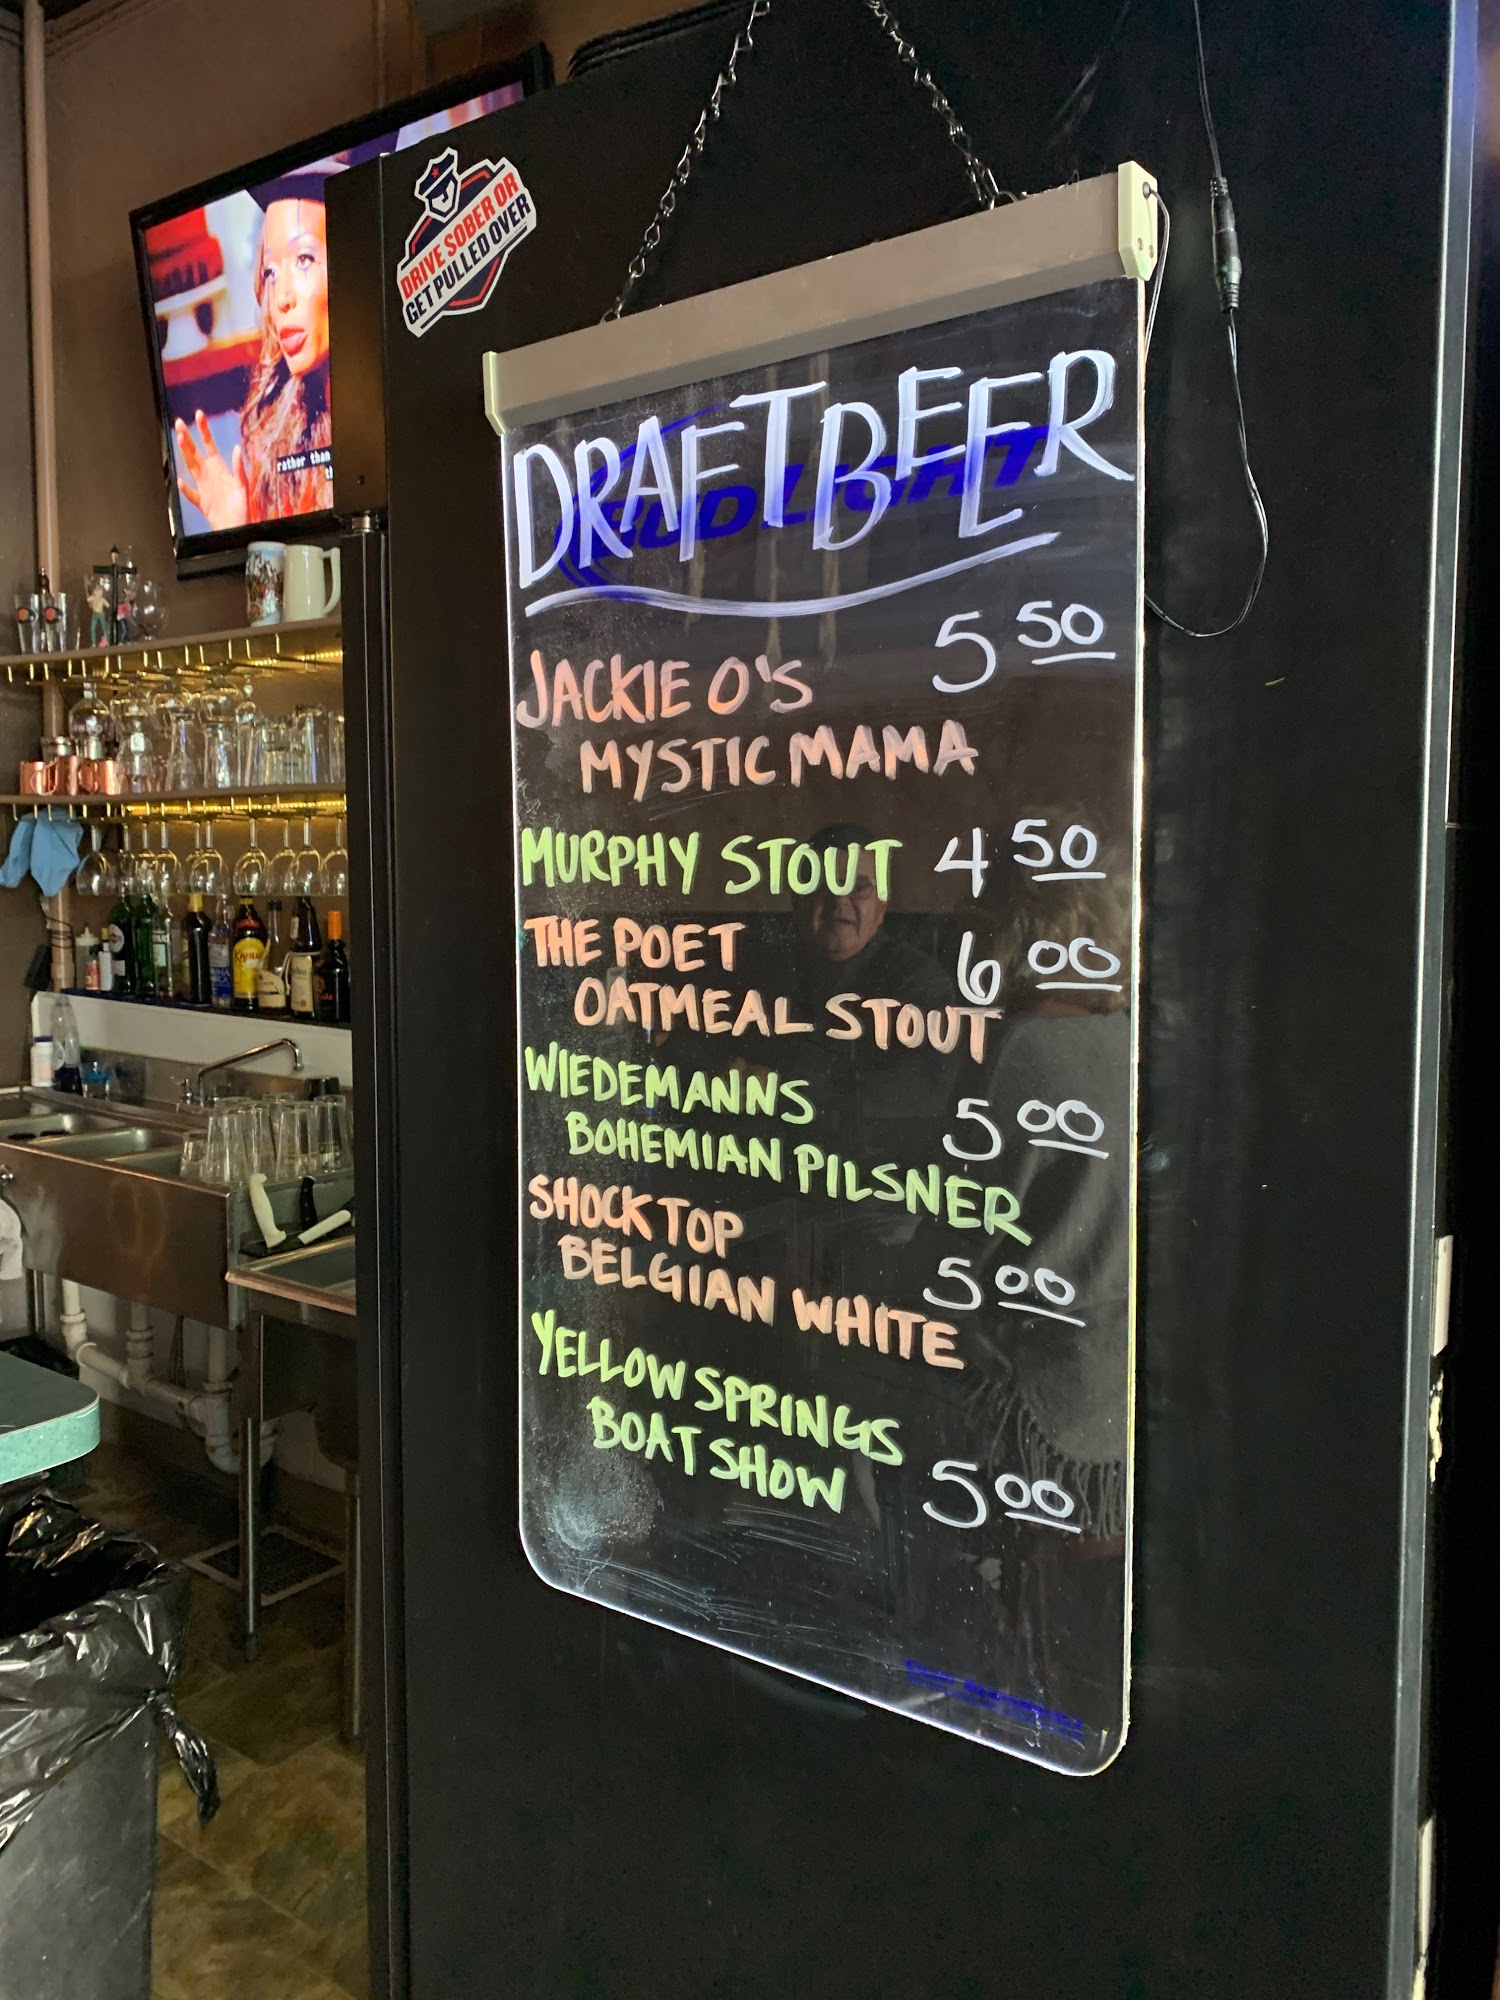 DRIVE SOBER OR
GET PULLED OVER
rather than
DRAFT BEER
BUD LIGHT
JACKIE O'S 5 50
MYSTIC MAMA
MURPHY STOUT 4 50
THE POET 6 00
OATMEAL STOUT
WIEDEMANNS
BOHEMIAN PILSNER 5 00
SHOCK TOP
BELGIAN WHITE 5 00
YELLOW SPRINGS
BOAT SHOW 5 00